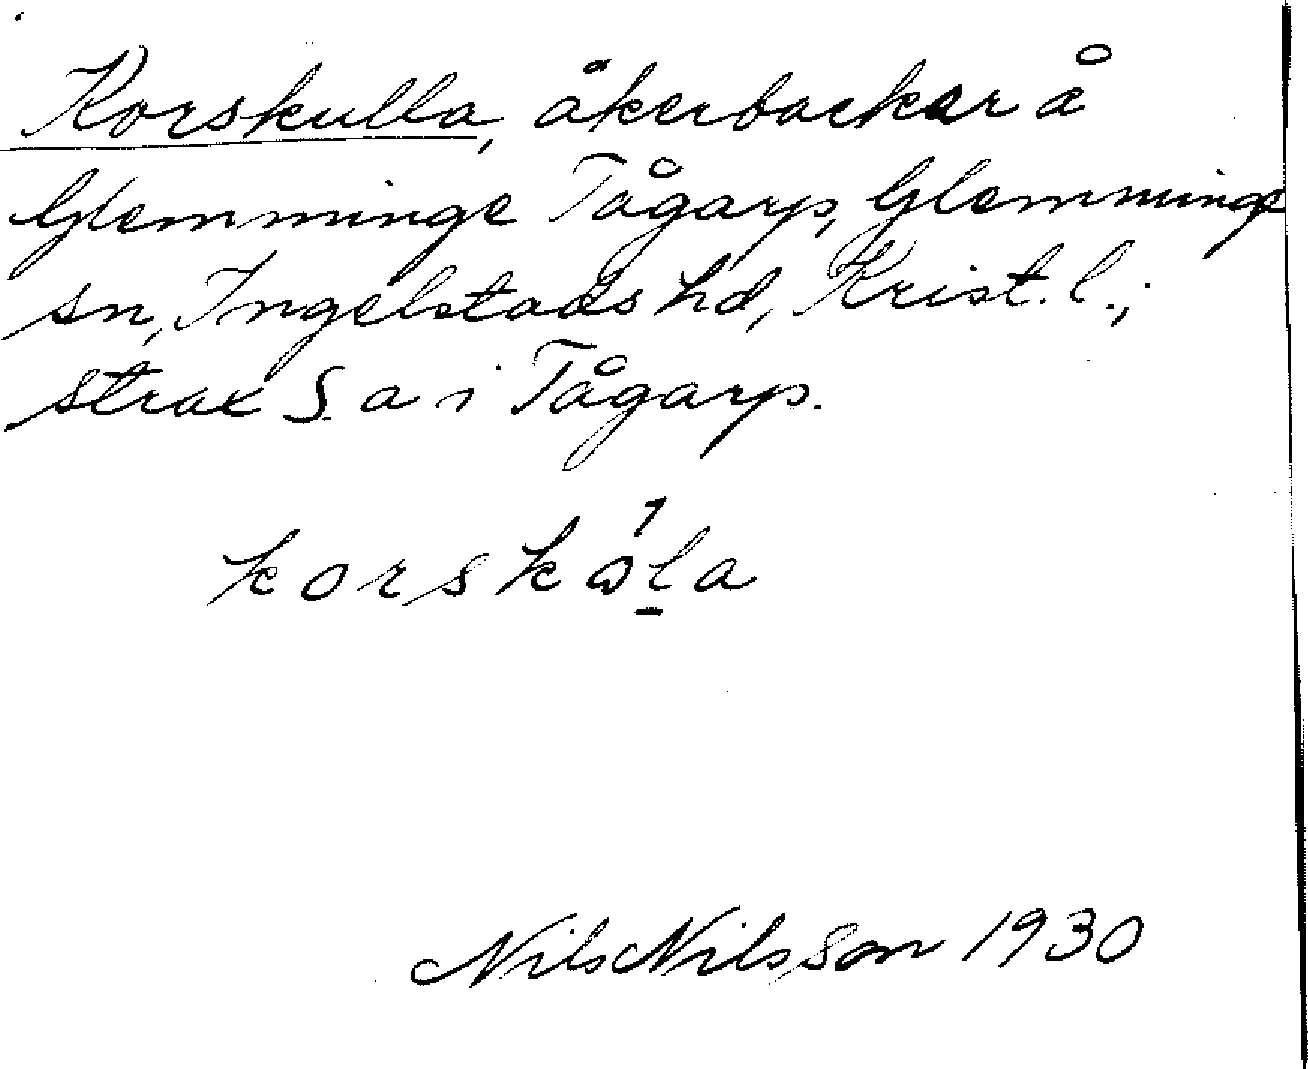 Korskulla, åkerbackar å
Glemminge Tågarp, Glemminge
sn, Ingelstads hd, Krist. l.;
strax S. a i Tågarp.
korskωla
Nils Nilsson 1930